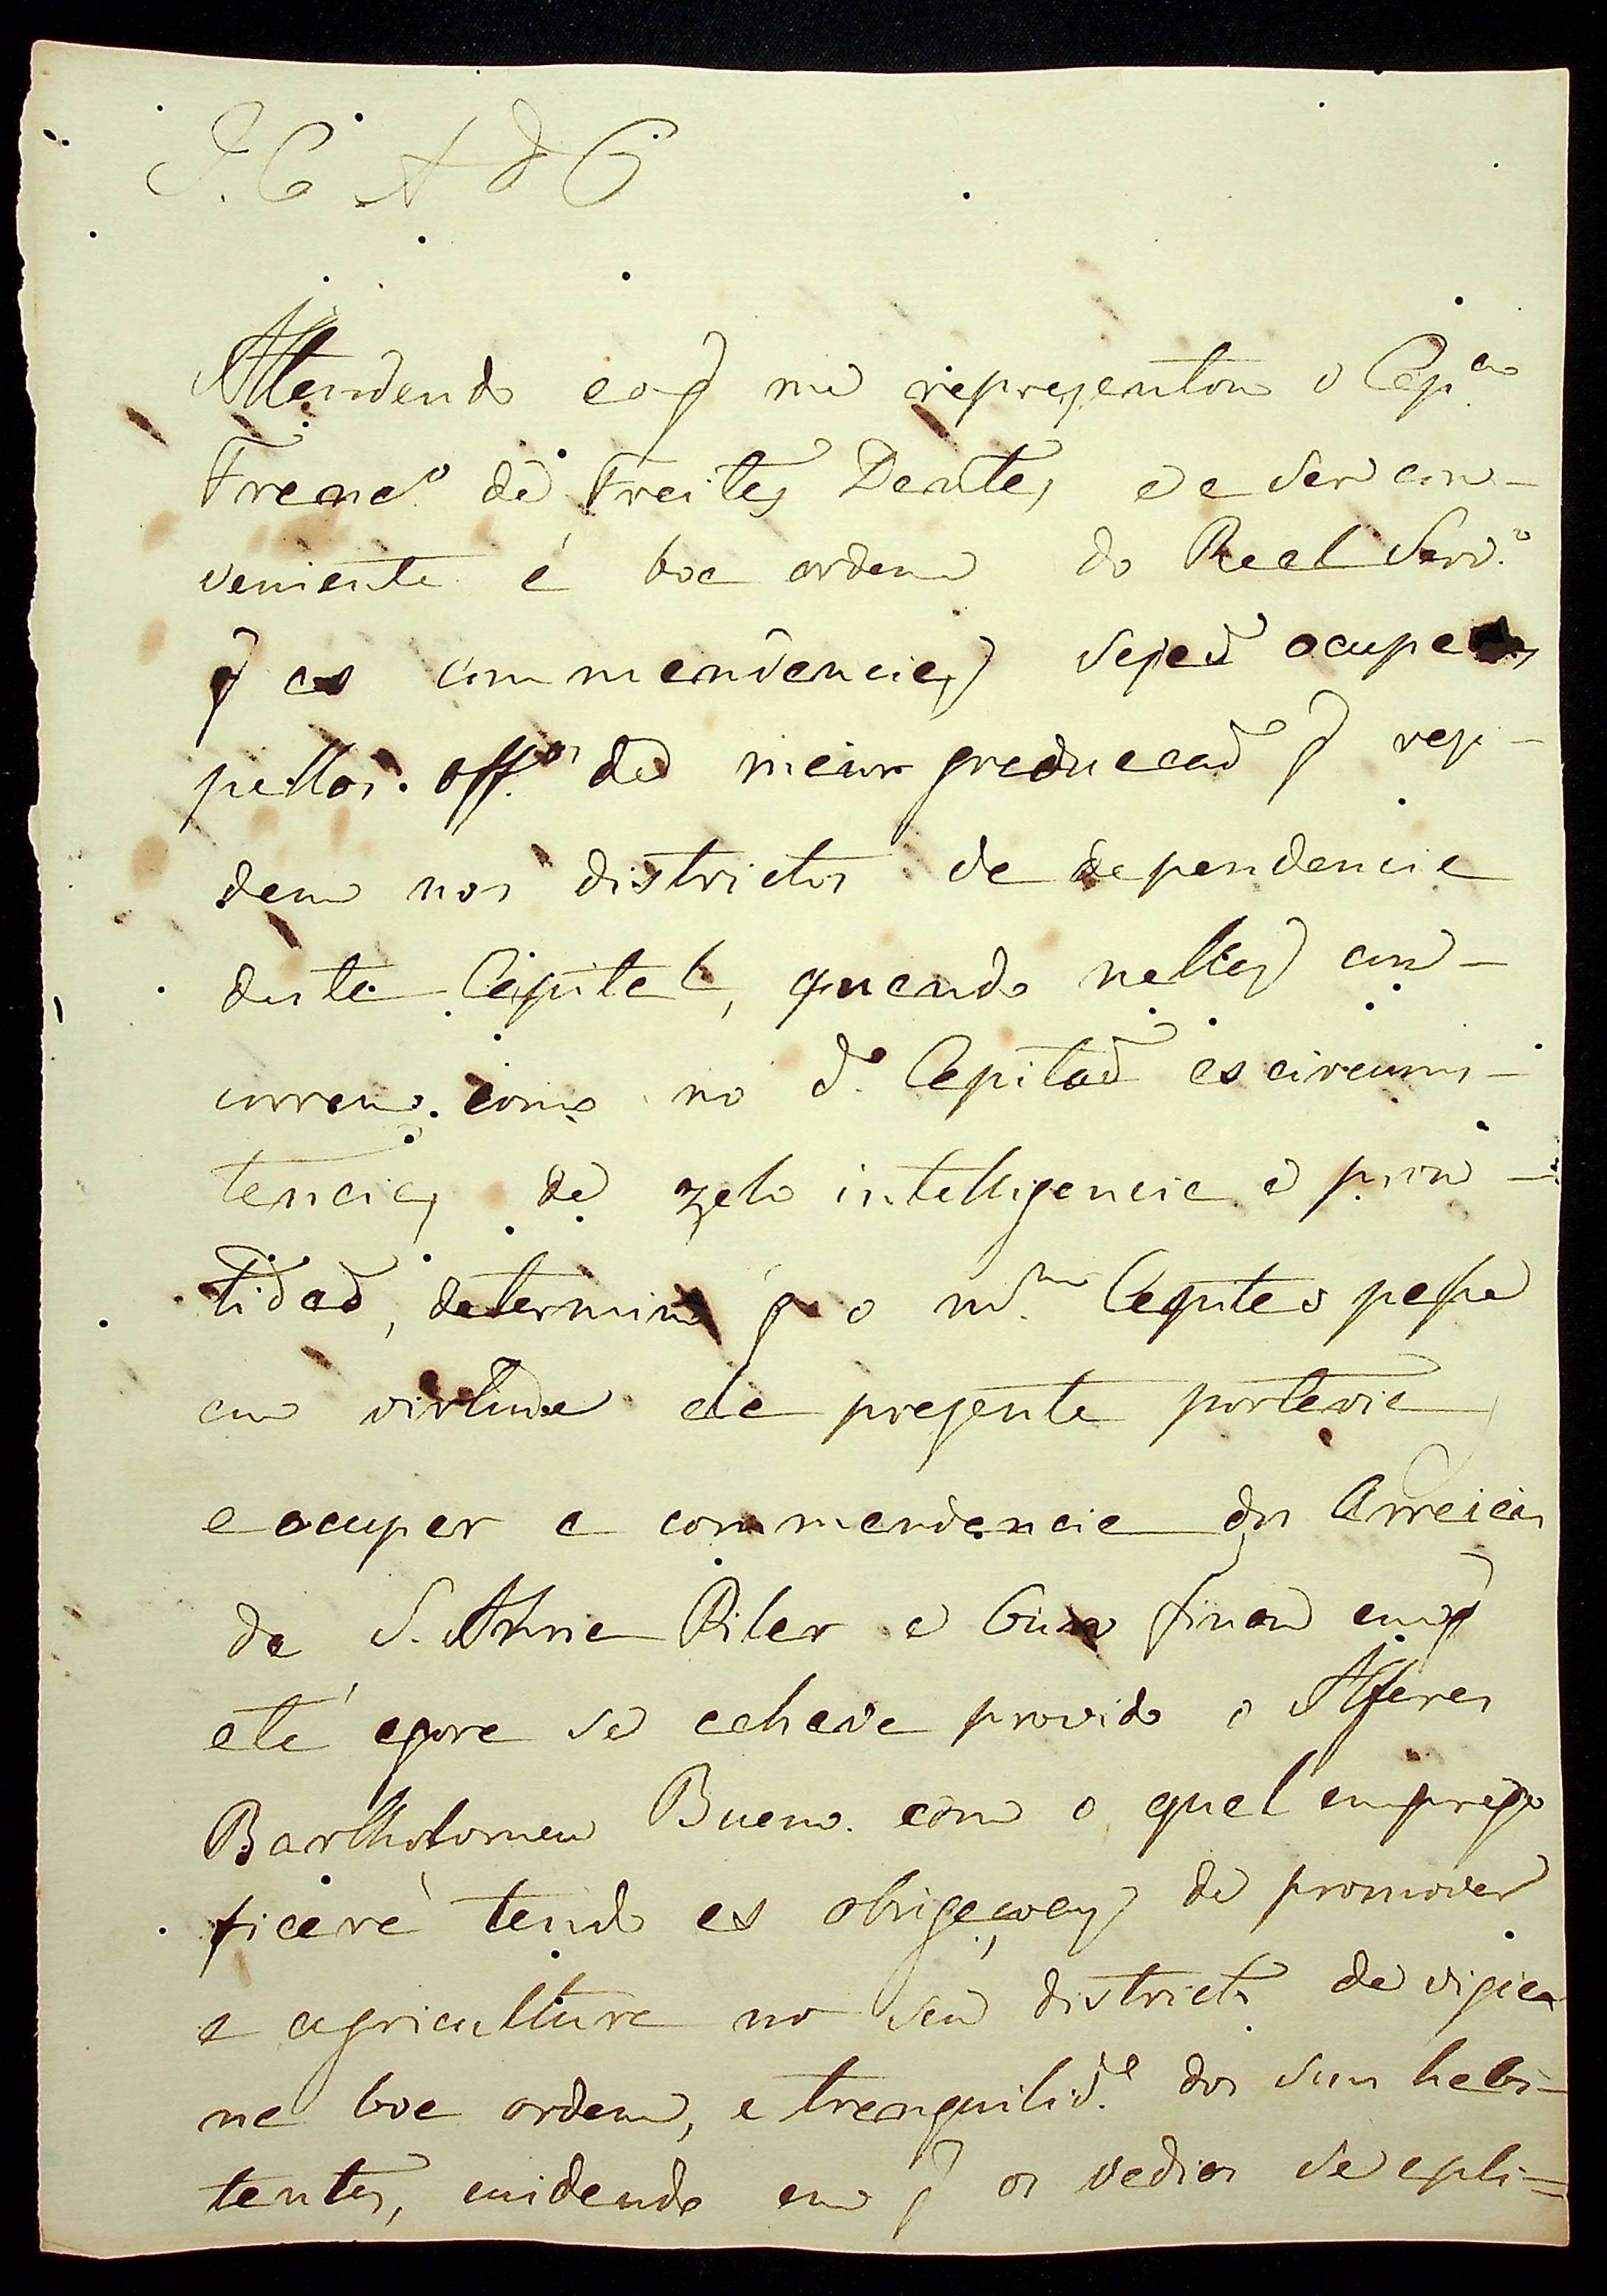 J. C A d C
Attendendo ao q̃ me reprezentou o Cap.am
Franc.o de Freitas Dantas, e a ser con-
veniente á boa ordem do Real Serv.o
q̃ as commandancias sejaõ ocupadas
pellos off.es de maior graduacaõ q̃ rezi-
dem nos districtos da dependencia
desta Capital, quando nelles con-
correm como no d.o Capitaõ as circums-
tancias de zelo intelligencia e prom-
tidaõ, determino q̃ o m.mo Capitaõ passe
em virtude da prezente portaria
a ocupar a commandancia dos Arreiais
de S. Anna Pilar e ... em q̃
até agora se achava provido o Alferes
Bartholomeu Bueno com o qual emprego
ficará tendo as obrigaçoens de promover
a agricultura no seu districto de vigiar
na boa ordem, e tranquilid.e dos seus habi-
tantes, cuidando em q̃ os vadios se apli=